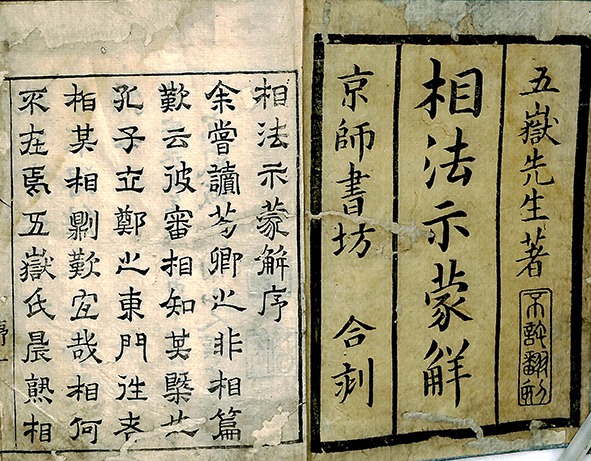 五嶽先生著
不許翻刻
相法示蒙解
京師書坊 合刻
相法示蒙解序
余嘗讀荀卿之非相篇
歎云彼審相知其槩
孔子立鄭之東門往來
相其相則歎宜哉相何
不在焉五嶽氏晨熟相